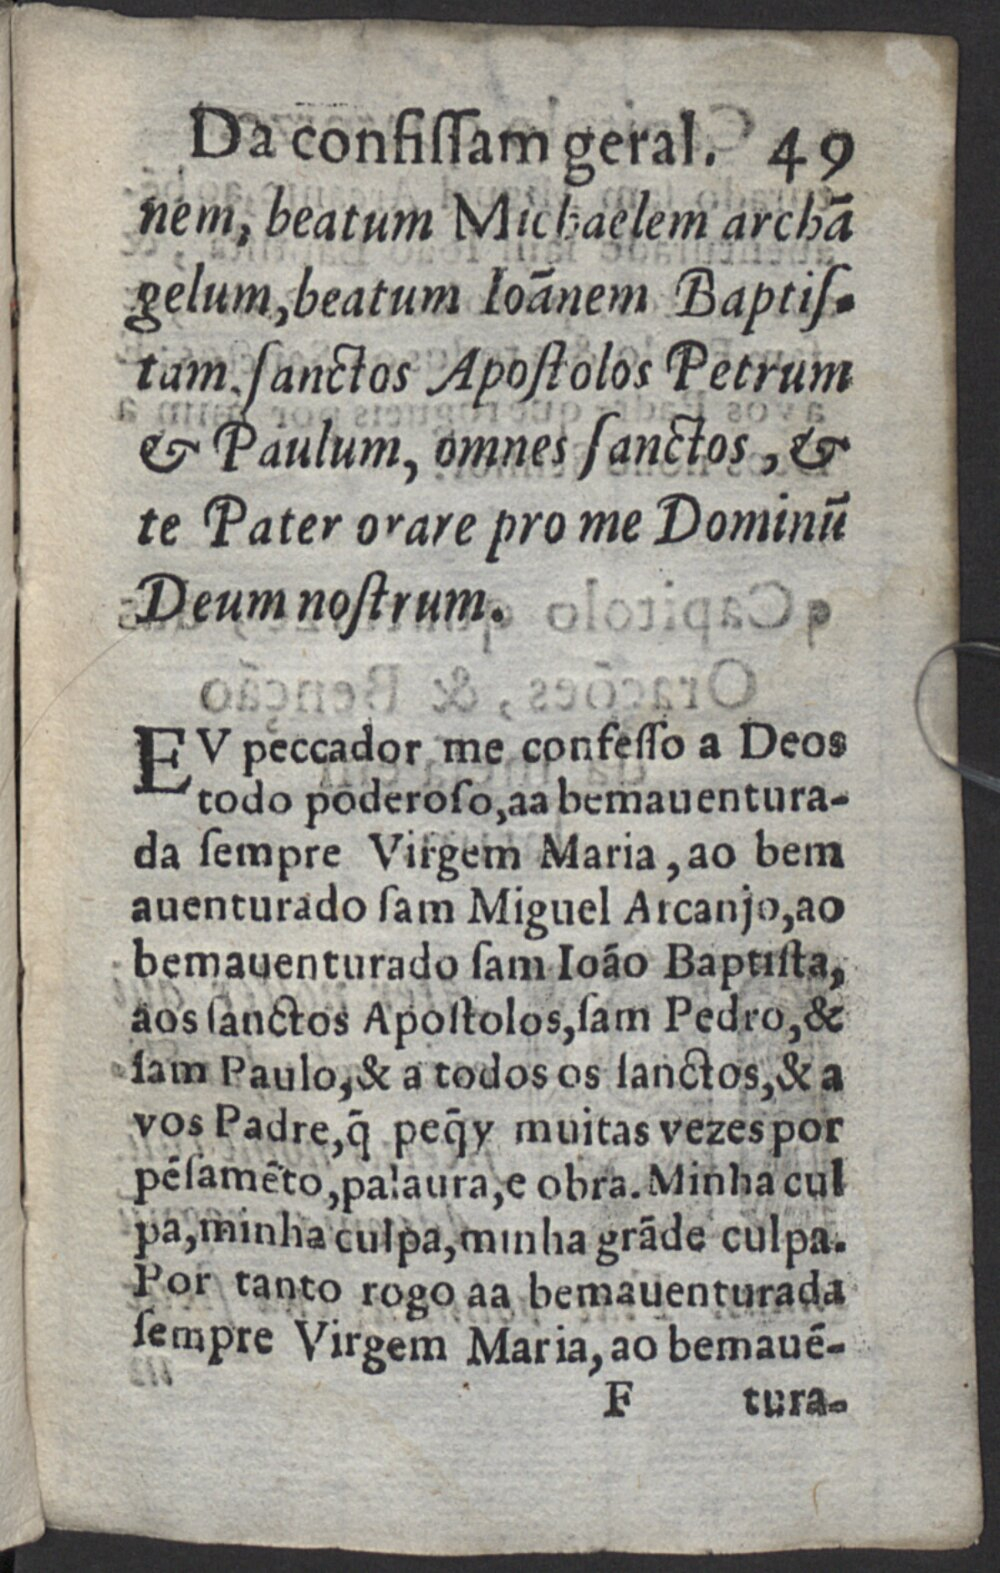 Da confiſſam geral. 49
nem, beatum Michaelem archã
gelum, beatum Ioãnem Baptiſ-
tam, ſanctos Apoſtolos Petrum
& Paulum, omnes ſanctos, &
te Pater orare pro me Dominũ
Deum noſtrum.
EV peccador me confeſſo a Deos
todo poderoſo, aa bemauentura-
da ſempre Virgem Maria, ao bem
auenturado ſam Miguel Arcanjo, ao
bemauenturado ſam Ioão Baptiſta,
aos ſanctos Apoſtolos, ſam Pedro, &
ſam Paulo, & a todos os ſanctos, & a
vos Padre, q̃ peq̃y muitas vezes por
pẽſamẽto, palaura, e obra. Minha cul
pa, minha culpa, minha grãde culpa.
Por tanto rogo aa bemauenturada
ſempre Virgem Maria, ao bemauẽ-
F tura-